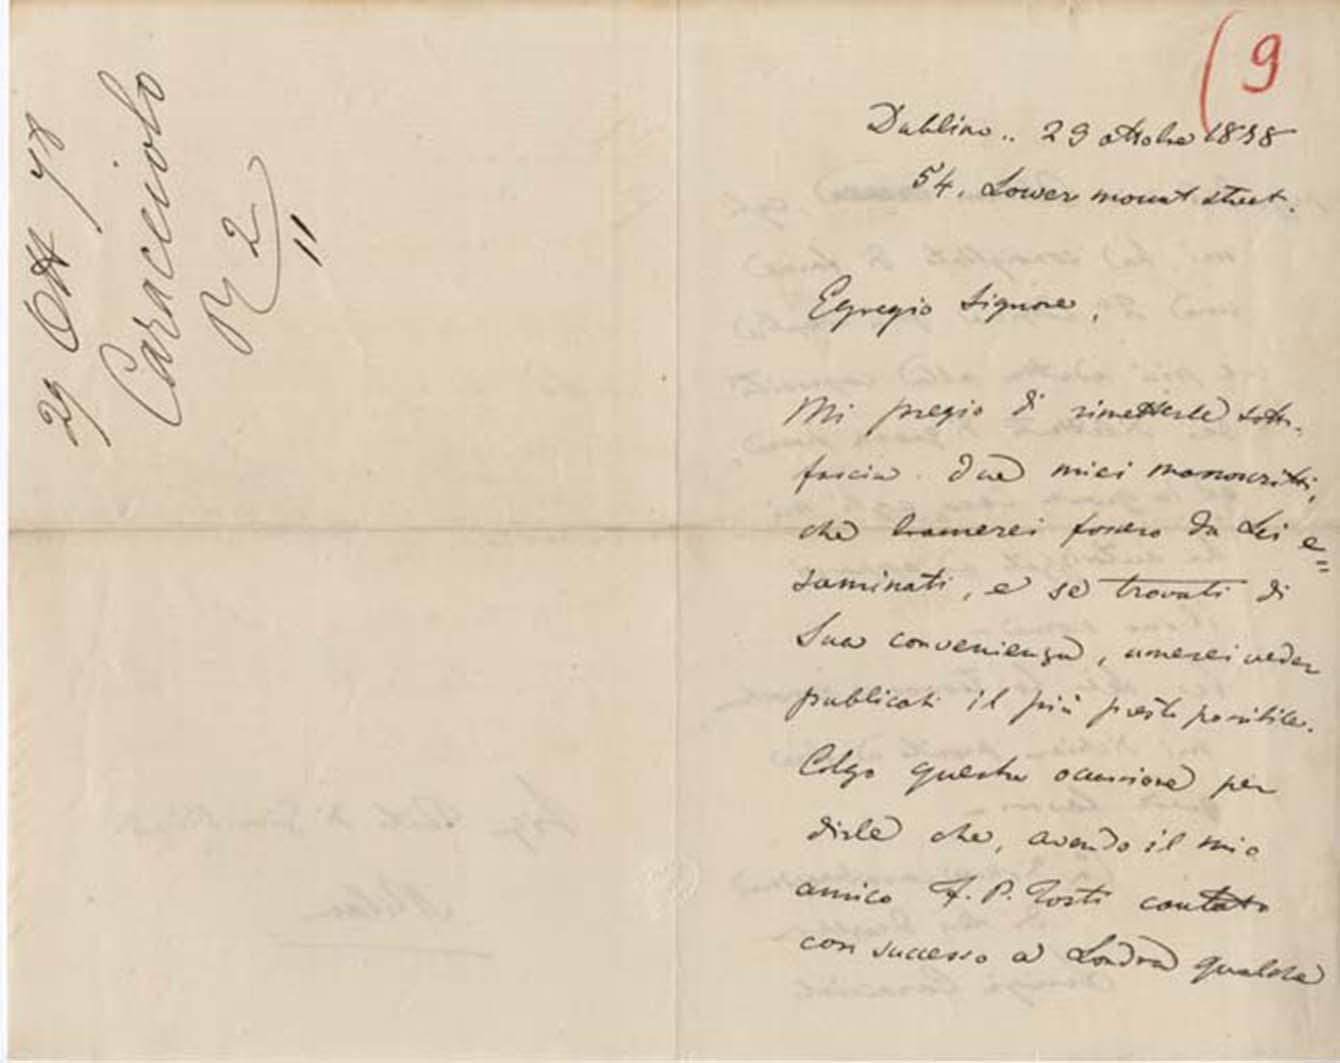 29 Ott 78
Caracciolo
R 2/11
(9
Dublino.. 29 ottobre 1878
54. Lower mount street.
Egregio Signore,
Mi pregio di rimetterle sotto-
fascia due miei manoscritti,
che bramerei fossero da Lei e=
saminati, e se trovati di
Sua convenienza, amerei veder
publicati il più presto possibile.
Colgo questa occasione per
dirle che, avendo il mio
amico F. P. Tosti cantato
con successo a Londra qualche